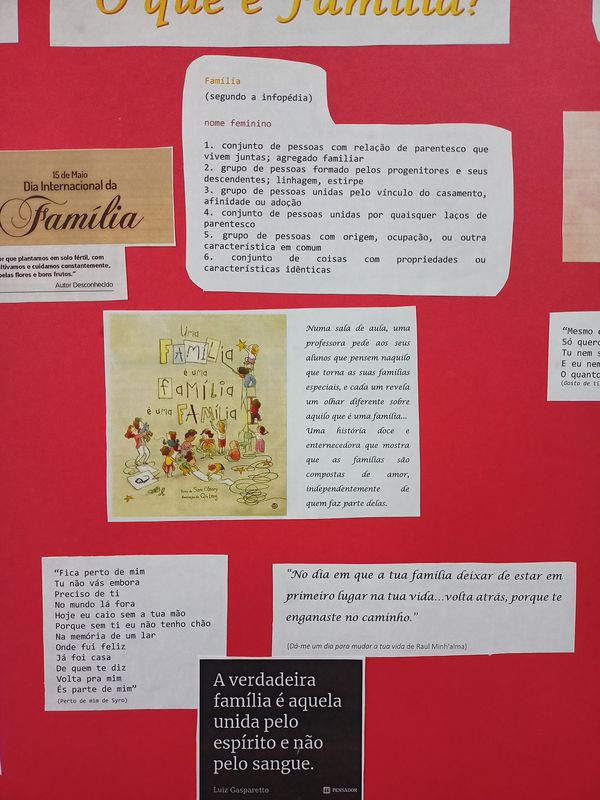 O que é Família?
Família
(segundo a infopédia)
nome feminino
1. conjunto de pessoas com relação de parentesco que
vivem juntas; agregado familiar
2. grupo de pessoas formado pelos progenitores e seus
descendentes; linhagem, estirpe
3. grupo de pessoas unidas pelo vínculo do casamento,
afinidade ou adoção
4. conjunto de pessoas unidas por quaisquer laços de
parentesco
5. grupo de pessoas com origem, ocupação, ou outra
característica em comum
6. conjunto de coisas com propriedades ou
características idênticas
15 de Maio
Dia Internacional da
Família
or que plantamos em solo fértil, com
ltivamos e cuidamos constantemente,
pelas flores e bons frutos."
Autor Desconhecido
Uma
FAMÍLIA
é uma
FAMÍLIA
é uma FAMÍLIA
Texto de Sara O'Leary
Ilustração de Qin Leng
Numa sala de aula, uma
professora pede aos seus
alunos que pensem naquilo
que torna as suas famílias
especiais, e cada um revela
um olhar diferente sobre
aquilo que é uma família...
Uma história doce e
enternecedora que mostra
que as famílias são
compostas de amor,
independentemente de
quem faz parte delas.
"Mesmo
Só quero
Tu nem s
E eu nem
O quanto
(Gosto de ti
"Fica perto de mim
Tu não vás embora
Preciso de ti
No mundo lá fora
Hoje eu caio sem a tua mão
Porque sem ti eu não tenho chão
Na memória de um lar
Onde fui feliz
Já foi casa
De quem te diz
Volta pra mim
És parte de mim"
(Perto de mim de Syro)
"No dia em que a tua família deixar de estar em
primeiro lugar na tua vida...volta atrás, porque te
enganaste no caminho."
(Dá-me um dia para mudar a tua vida de Raul Minh'alma)
A verdadeira
família é aquela
unida pelo
espírito e não
pelo sangue.
Luiz Gasparetto
PENSADOR